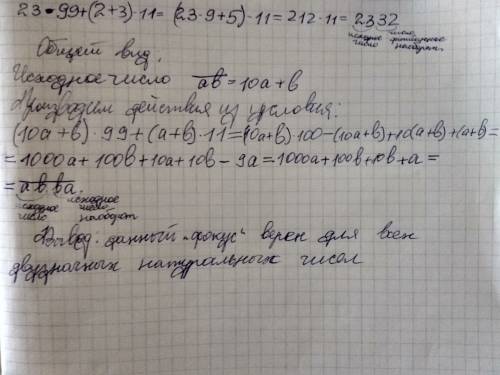 23·99+(2+3)·11=(23·9+5)·11=212·11=2332
исходное число
число наоборот.
Общий вид.
Исходное число ab=10a+b
Производим действия из условия:
(10a+b)·99+(a+b)·11=(10a+b)·100-(10a+b)+10(a+b)+(a+b)=
=1000a+100b+10a+10b-9a=1000a+100b+10b+a=
=ab ba.
исходное исходное
число число
наоборот
Вывод: данный "фокус" верен для всех
двузначных натуральных чисел